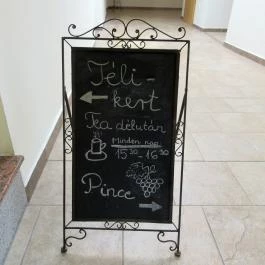 Téli-
kert
Tea délután
Minden nap
15³⁰-16³⁰
Pince